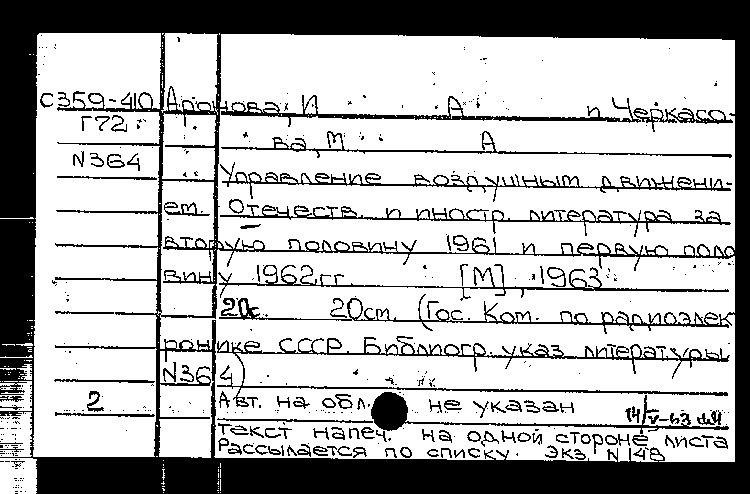 С359-410 Аронова, И А и Черкасо-
Г72 ва, М А
N364
Управление воздушным движени-
ем. Отечеств. и иностр. литература за
вторую половину 1961 и первую поло
вину 1962 гг. [М], 1963
20с. 20см. (Гос. Ком. по радиоэлек
ронике СССР. Библиогр. указ. литературы
N364)
2 Авт. на обл. не указан
Текст напеч. на одной стороне листа
Рассылается по списку. Экз. N 148